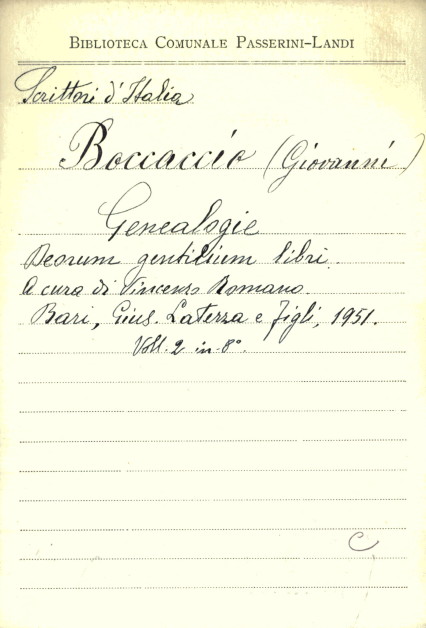 BIBLIOTECA COMUNALE PASSERINI-LANDI
Scrittori d'Italia
Boccaccio (Giovanni)
Genealogie
Deorum gentilium libri.
A cura di Vincenzo Romano.
Bari, Gius. Laterza e Figli, 1951.
Voll. 2 in-8°.
C